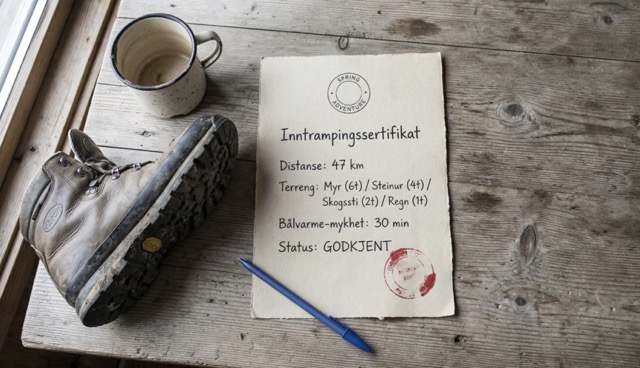 SPRING
ADVENTURE
Inntrampingssertifikat
Distanse: 47 km
Terreng: Myr (6t) / Steinur (4t) /
Skogssti (2t) / Regn (1t)
Bålvarme-mykhet: 30 min
Status: GODKJENT